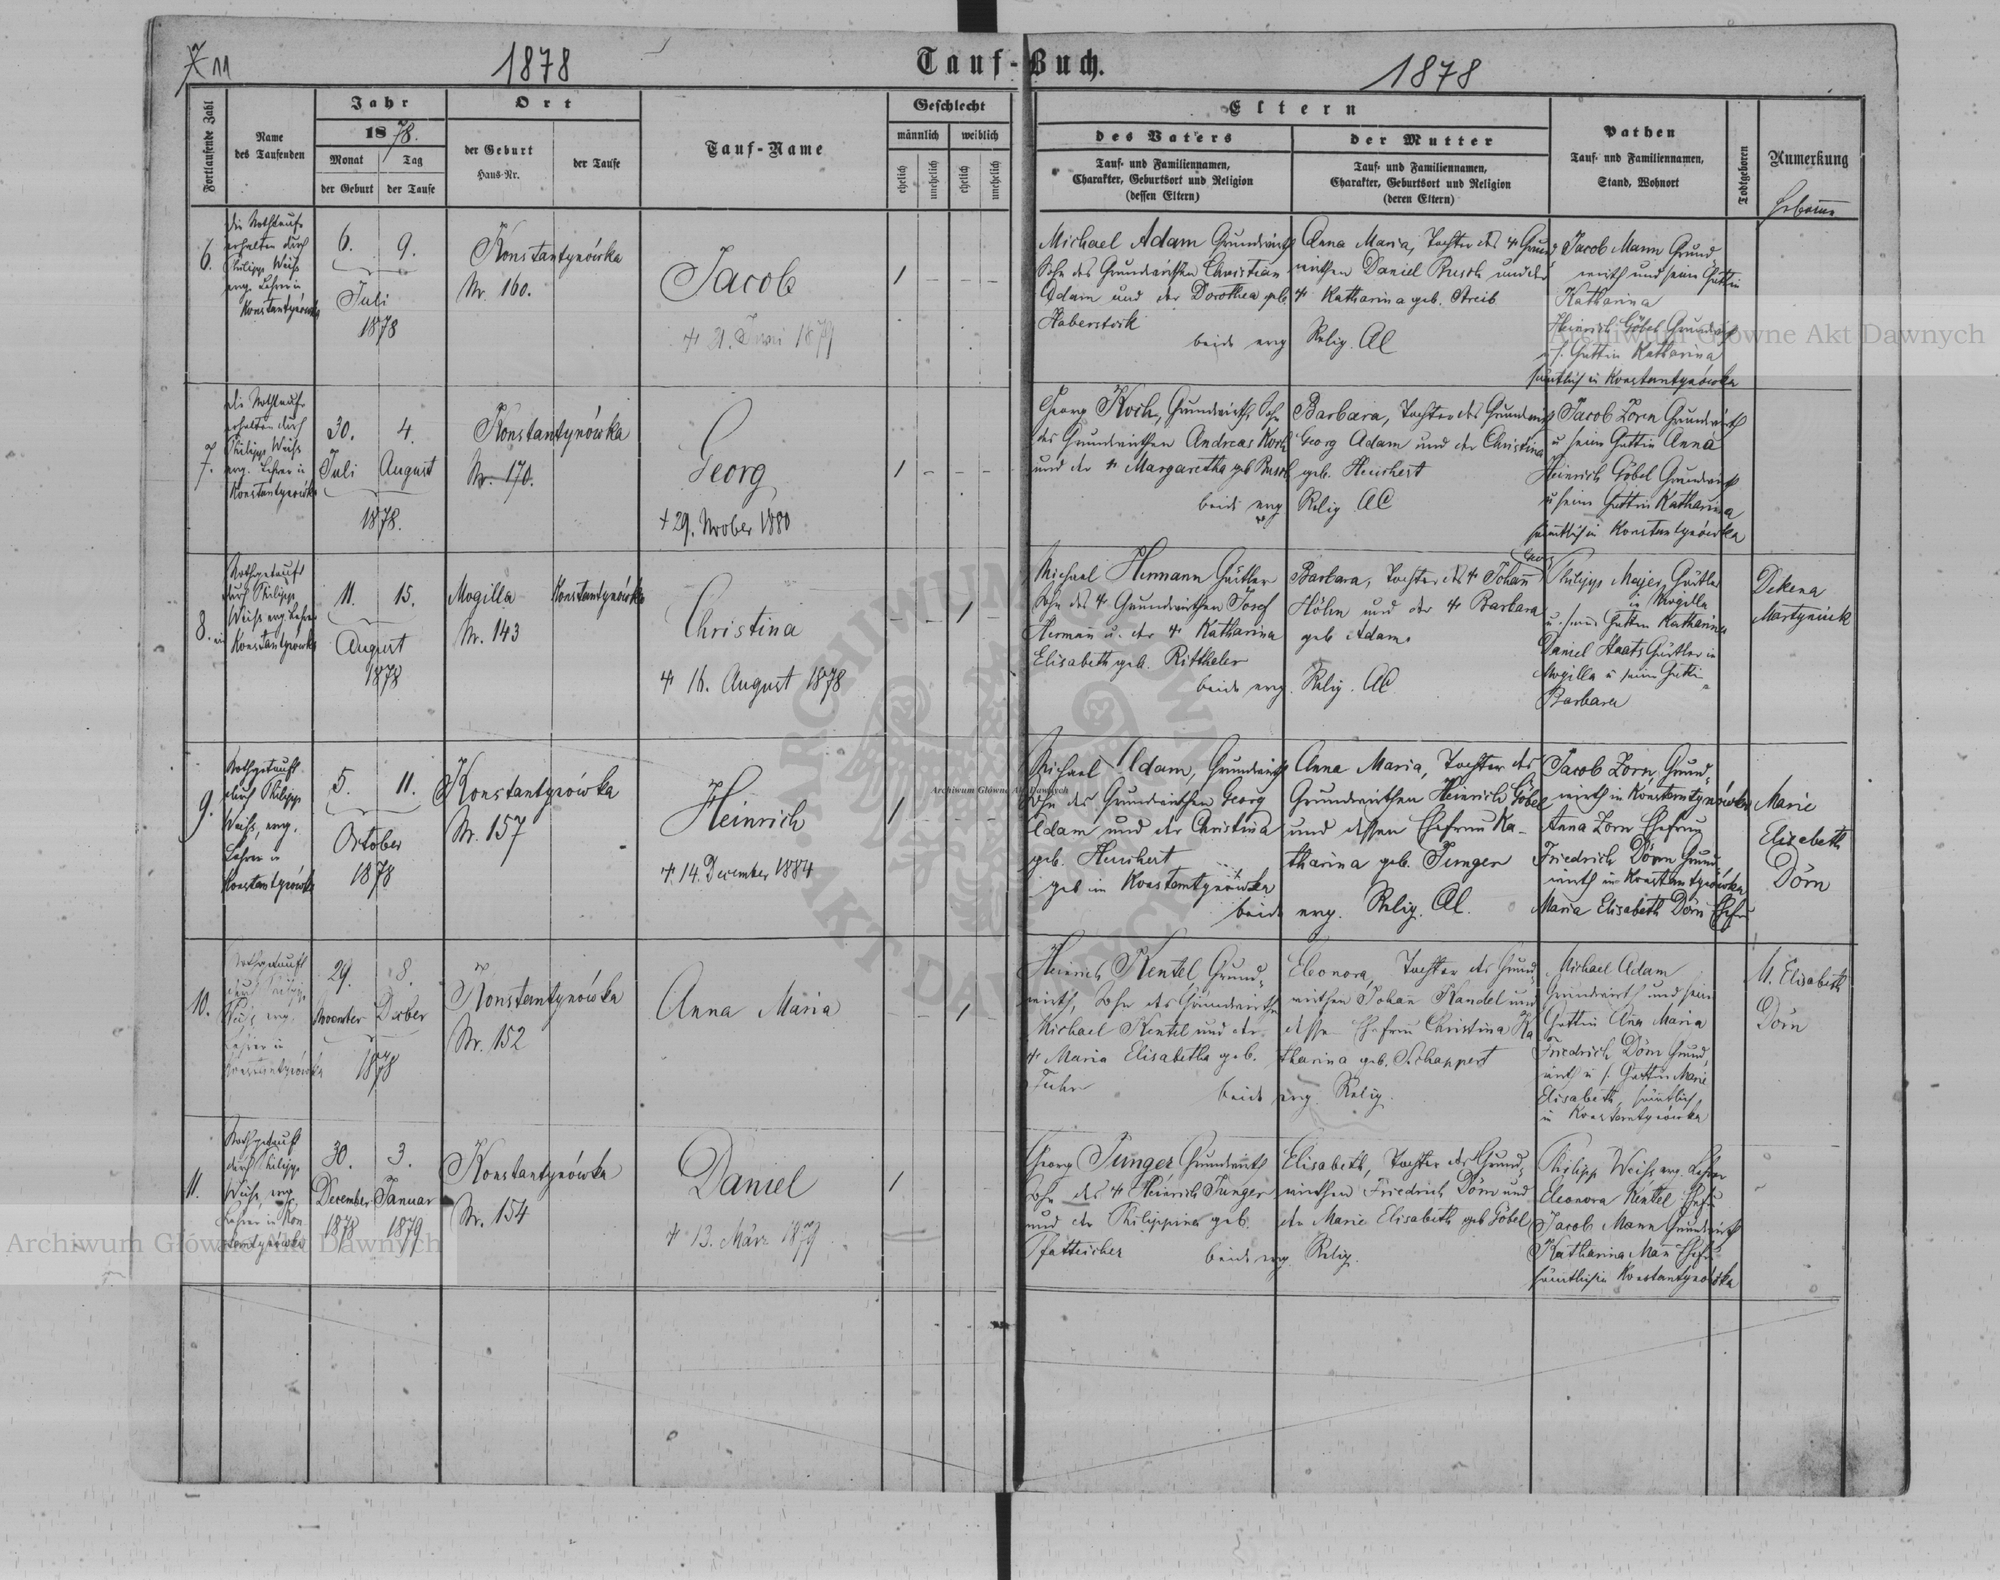 11
1878
Tauf-Buch.
1878
Fortlaufende Zahl
Name
des Taufenden
Jahr
1878.
Monat
Tag
der Geburt
der Taufe
Ort
der Geburt
Haus-Nr.
der Taufe
Tauf-Name
Geschlecht
männlich
weiblich
ehelich
unehelich
ehelich
unehelich
Eltern
des Vaters
Tauf- und Familiennamen,
Charakter, Geburtsort und Religion
(dessen Eltern)
der Mutter
Tauf- und Familiennamen,
Charakter, Geburtsort und Religion
(deren Eltern)
Pathen
Tauf- und Familiennamen,
Stand, Wohnort
Todtgeboren
Anmerkung
6.
die Nothtaufe
erhalten durch
Philipp Weihs
evg. Lehrer in
Konstantynówka
6. 9.
Juli
1878
Konstantynówka
Nr. 160.
Jacob
+ 21. Juni 1879
1
Michael Adam Grundwirth
Sohn des Grundwirthen Christian
Adam und der Dorothea geb.
Haberstock
beide evg
Anna Maria, Tochter des + Grund
wirthen Daniel Busch und der
+ Katharina geb. Streib
Relig. AC
Jacob Mann Grund-
wirth und seine Gattin
Katharina
Heinrich Göbel Grundwirth
u. s. Gattin Katharina
sämtlich in Konstantynówka
7.
die Nothtaufe
erhalten durch
Philipp Weihs
evg. Lehrer in
Konstantynówka
30. 4.
Juli August
1878.
Konstantynówka
Nr. 170.
Georg
+ 29. Novober 1880
1
Georg Koch, Grundwirth, Sohn
des Grundwirthen Andreas Koch
und der + Margaretha geb Busch
beide evg
Barbara, Tochter des Grundwirth
Georg Adam und der Christina
geb. Heuchert
Relig AC
Jacob Zorn Grundwirth
u seine Gattin Anna
Heinrich Göbel Grundwirth
u seine Gattin Katharina
sämtlich in Konstantynówka
8.
Nothgetauft
durch Philipp
Weihs evg. Lehrer
in Konstantynówka
11. 15.
August
1878
Mogilla
Nr. 143
Konstantynówka
Christina
+ 16. August 1878
1
Michael Hermann Gärtler
Sohn des + Grundwirthen Josef
Herman u. der + Katharina
Elisabeth geb. Ritthaler
beide evg.
Barbara, Tochter des + Johann Georg
Höhn und der + Barbara
geb Adam
Relig. AC
Philipp Majer, Gärtler
in Mogilla
u. seine Gattin Katharina
Daniel Staats Gärtler in
Mogilla u seine Gattin
Barbara
Dekena
Martyniuk
9.
Nothgetauft
durch Philipp
Weihs, evg.
Lehrer in
Konstantynówka
5. 11.
October
1878
Konstantynówka
Nr. 157
Heinrich
+ 14. December 1884
1
Michael Adam, Grundwirth
Sohn des Grundwirthen Georg
Adam und der Christina
geb. Heuchert
geb in Konstantynówka
beide
Anna Maria, Tochter des
Grundwirthen Heinrich Göbel
und dessen Ehefrau Ka-
tharina geb. Junger
evg. Relig. AC.
Jacob Zorn, Grund-
wirth in Konstantynówka
Anna Zorn Ehefrau
Friedrich Dörn Grund-
wirth in Konstantynówka
Maria Elisabeth Dörn Ehefr
Marie
Elisebeth
Dörn
10.
Nothgetauft
durch Philipp
Weihs evg.
Lehrer in
Konstantynówka
29. 8.
November Decber
1878
Konstantynówka
Nr. 152
Anna Maria
1
Heinrich Kentel, Grund-
wirth, Sohn des Grundwirth
Michael Kentel und der
+ Maria Elisabetha geb.
Fuhr
beide
Eleonora, Tochter des Grund-
wirthen Johan Kandel und
dessen Ehefrau Christina Ka
tharina geb. Schappert
evg. Relig.
Michael Adam
Grundwirth und seine
Gattin Ana Maria
Friedrich Dörn Grund-
wirth u s. Gattin Marie
Elisabeth, sämtlich
in Konstantynówka
M. Elisabeth
Dörn
11.
Nothgetauft
durch Philipp
Weihs, evg.
Lehrer in Kon
stantynówka
30. 3.
December Januar
1878 1879
Konstantynówka
Nr. 154
Daniel
+ 13. März 1879
1
Georg Junger Grundwirth
Sohn des + Heinrich Junger
und der Philippine geb.
Pfatteicher
beide evg.
Elisabeth, Tochter des Grund-
wirthen Friedrich Dörn und
der Marie Elisabeth geb Göbel
Relig.
Philipp Weihs evg. Lehrer
Eleonora Kentel Ehefr
Jacob Mann Grundwirth
Katharina Man Ehefr
sämtlich in Konstantynówka
Archiwum Główne Akt Dawnych
Archiwum Główne Akt Dawnych
Archiwum Główne Akt Dawnych